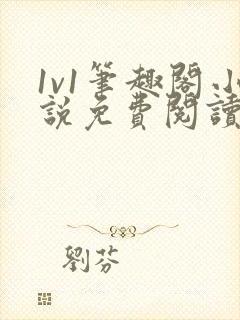 1v1筆趣閣.小
說免費閱讀
劉芬